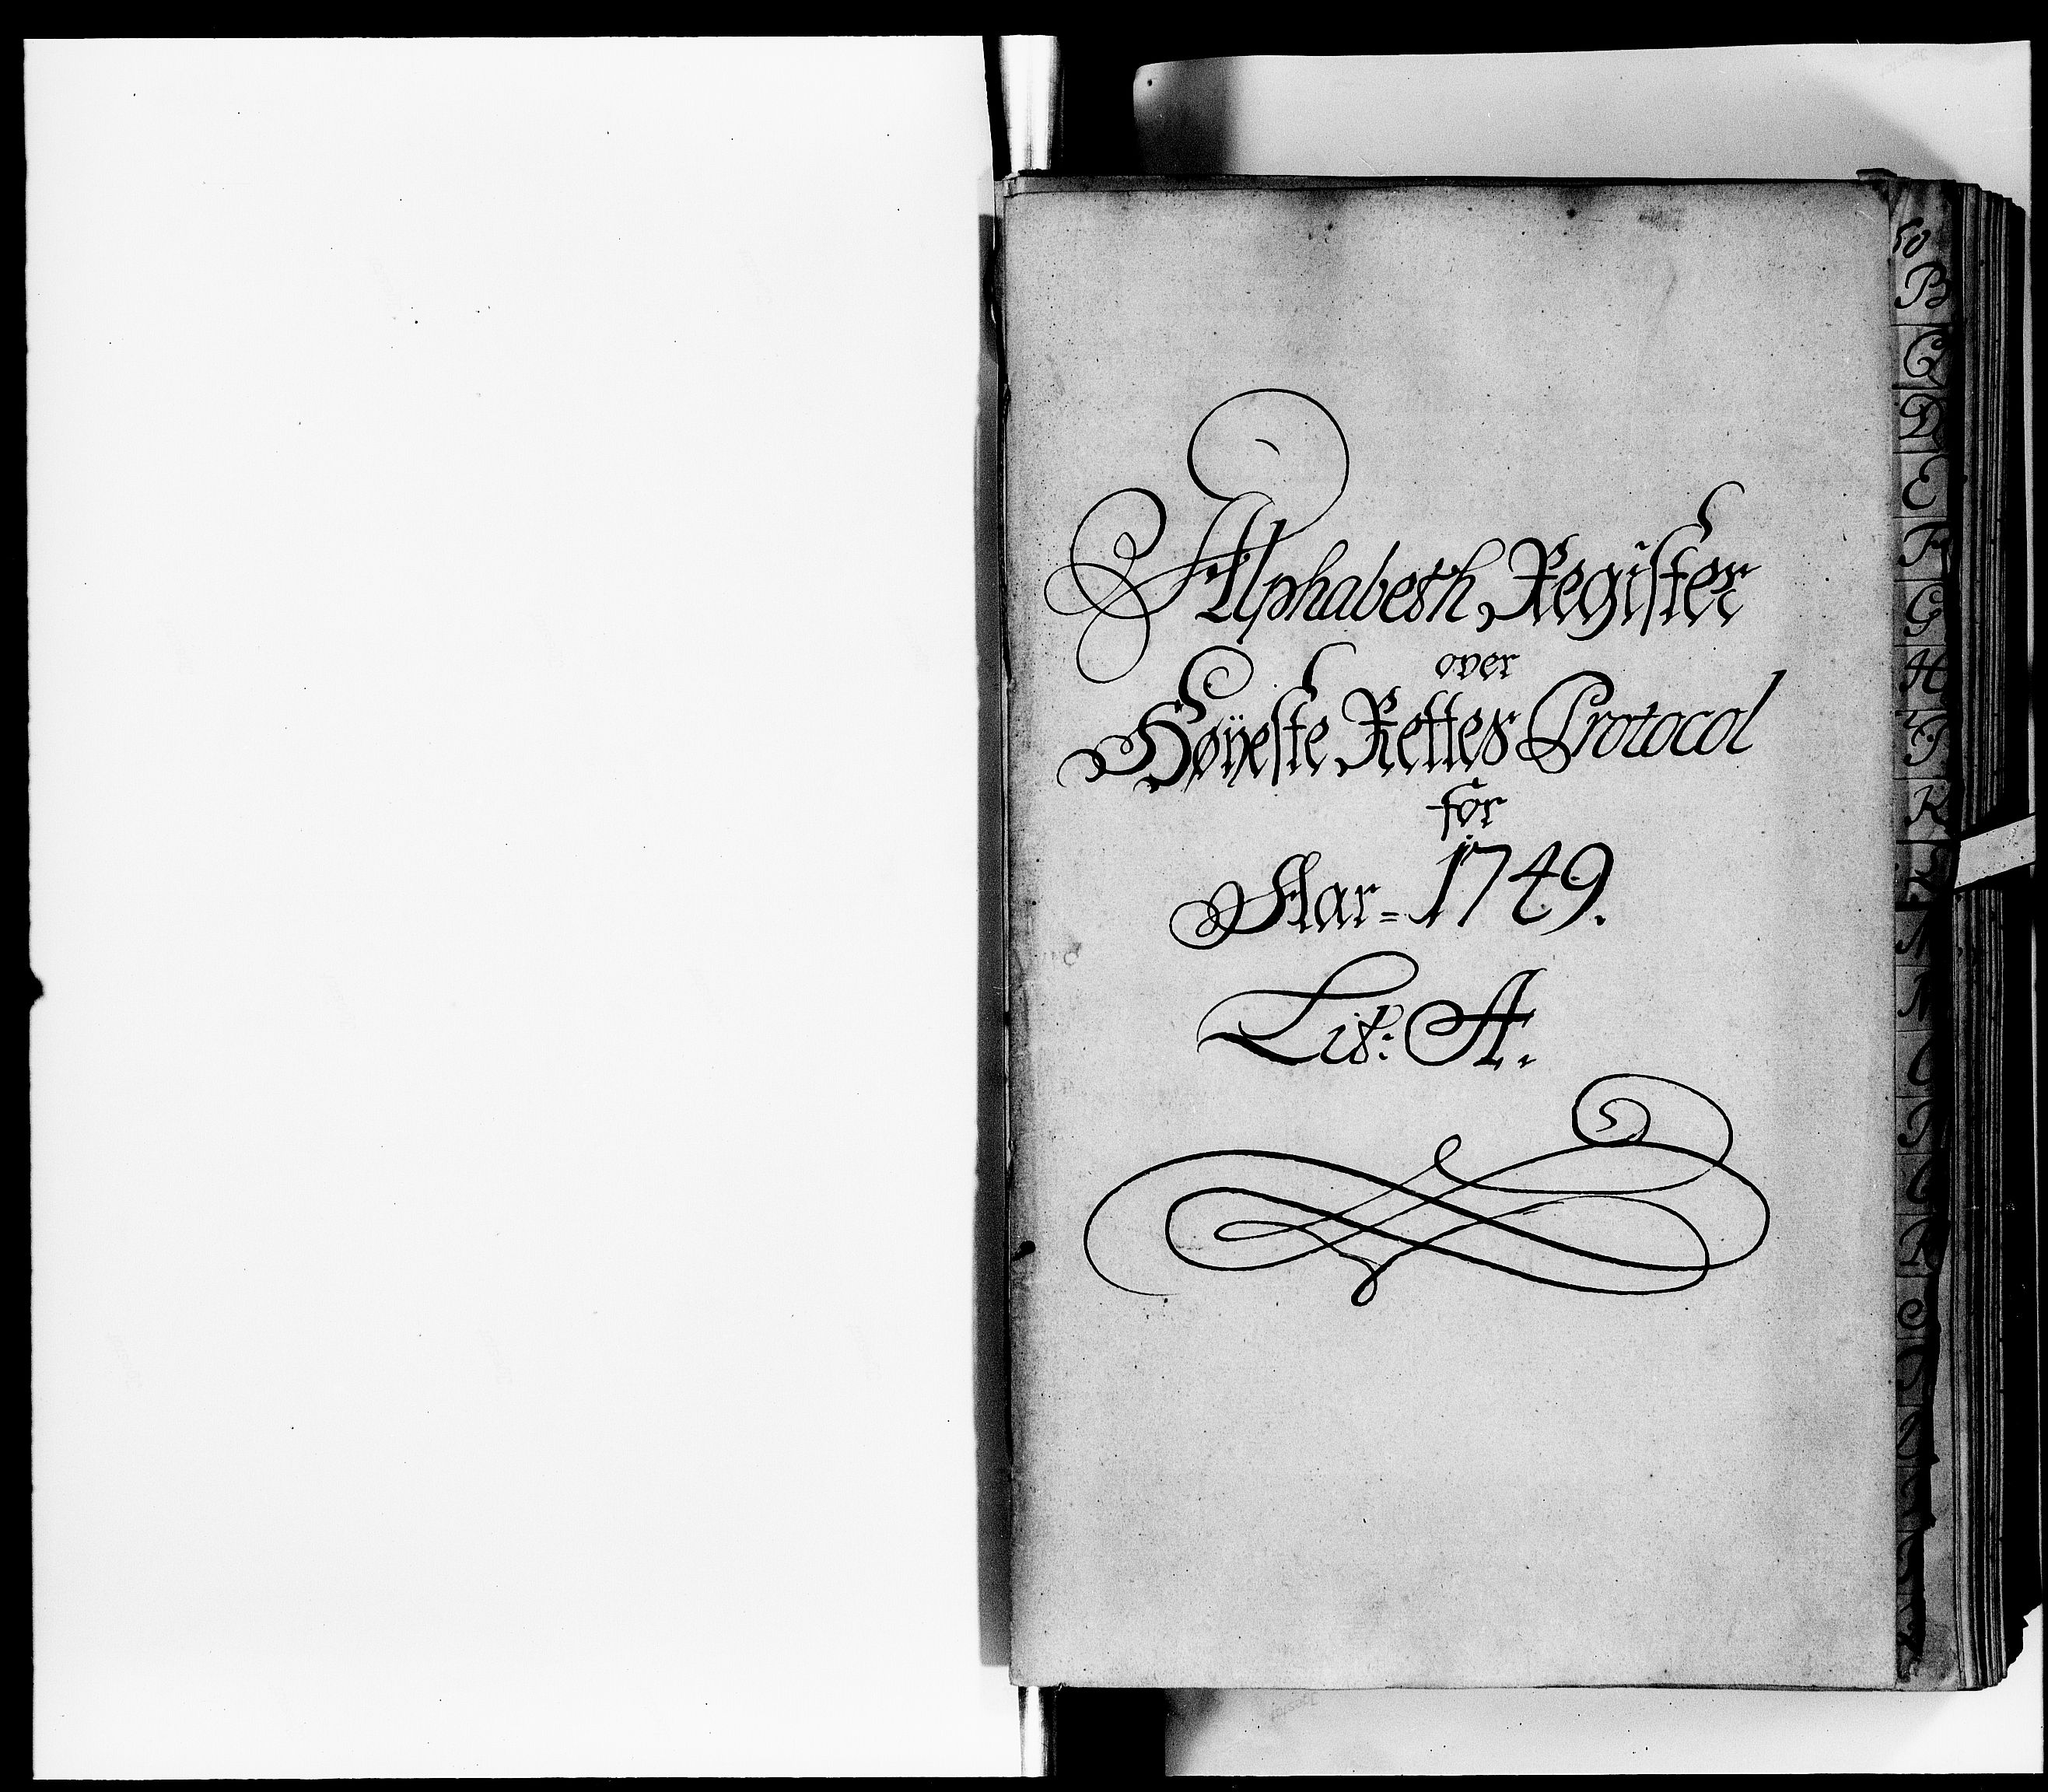 Alphabeth Register
over
Høÿeste Rettes Protocol
for
Aar = 1749.
Lit: A.
B
C
D
E
F
G
H
J
K